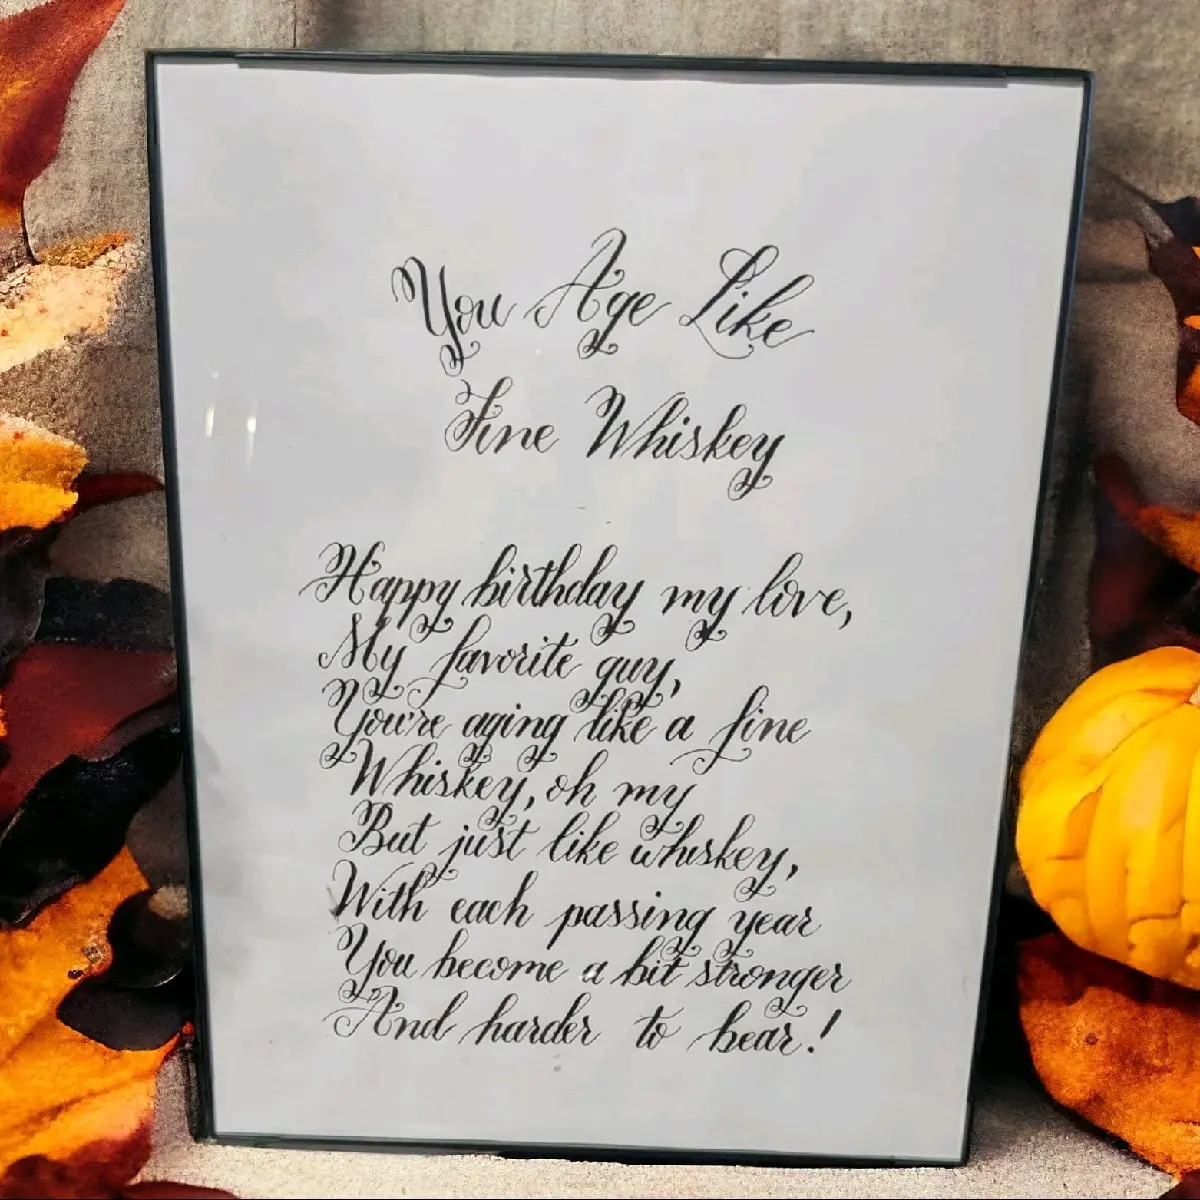 You Age Like
Fine Whiskey
Happy birthday my love,
My favorite guy,
You're aging like a fine
Whiskey, oh my
But just like whiskey,
With each passing year
You become a bit stronger
And harder to bear!